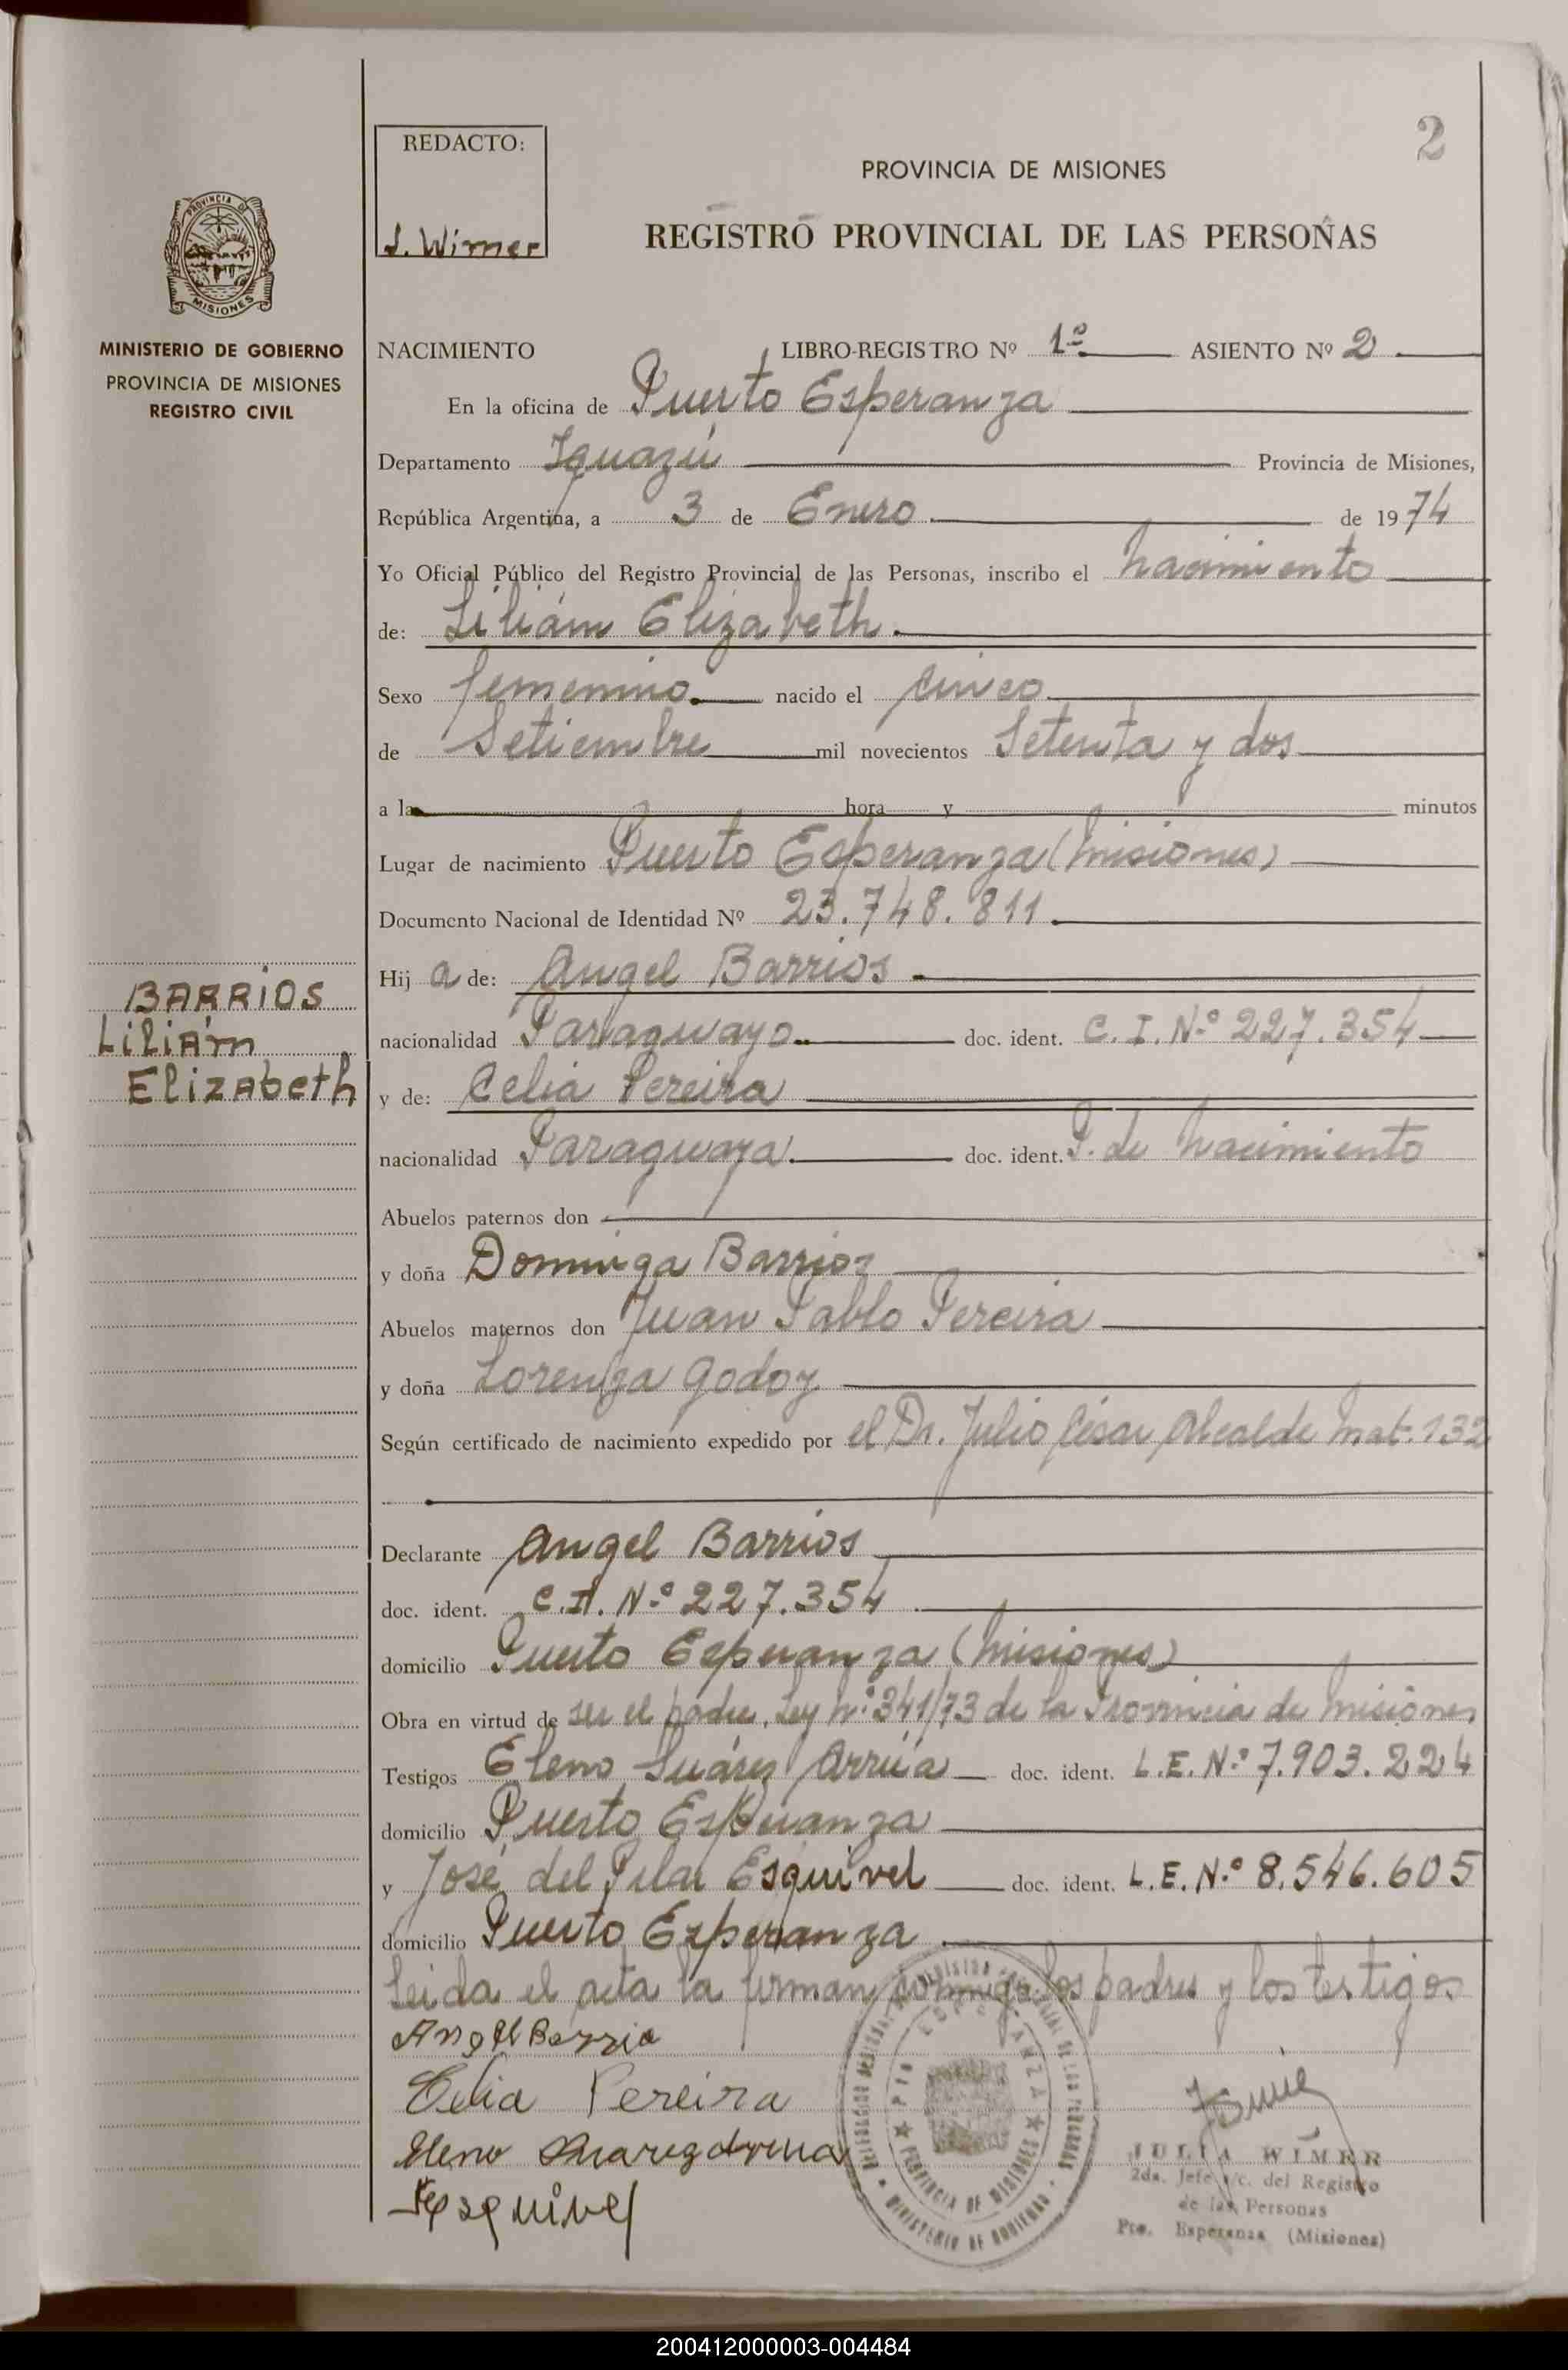 2
REDACTO:
J. Wimer
PROVINCIA DE MISIONES
REGISTRO PROVINCIAL DE LAS PERSONAS
PROVINCIA DE
MISIONES
MINISTERIO DE GOBIERNO
PROVINCIA DE MISIONES
REGISTRO CIVIL
NACIMIENTO LIBRO-REGISTRO Nº 1º ASIENTO Nº 2
En la oficina de Puerto Esperanza
Departamento Iguazú Provincia de Misiones,
República Argentina, a 3 de Enero de 1974
Yo Oficial Público del Registro Provincial de las Personas, inscribo el nacimiento
de: Lilián Elizabeth.
Sexo femenino. nacido el cinco
de Setiembre mil novecientos Setenta y dos
a la hora y minutos
Lugar de nacimiento Puerto Esperanza (Misiones)
Documento Nacional de Identidad Nº 23.748.811
Hija de: Angel Barrios
BARRIOS
Lilián
Elizabeth
nacionalidad Paraguayo. doc. ident. C.I. Nº 227.354
y de: Celia Pereira
nacionalidad Paraguaya. doc. ident. P. de Nacimiento
Abuelos paternos don
y doña Dominga Barrios
Abuelos maternos don Juan Pablo Pereira
y doña Lorenza Godoy
Según certificado de nacimiento expedido por el Dr. Julio César Alcalde Mat. 132
Declarante Angel Barrios
doc. ident. C.I. Nº 227.354
domicilio Puerto Esperanza (Misiones)
Obra en virtud de ser el padre. Ley Nº 341/73 de la Provincia de Misiones
Testigos Eleno Suárez Arrúa doc. ident. L.E. Nº 7.903.224
domicilio Puerto Esperanza
y José del Pilar Esquivel doc. ident. L.E. Nº 8.546.605
domicilio Puerto Esperanza
Leida el acta la firman conmigo los padres y los testigos
Angel Barrio
Celia Pereira
Eleno Suarez Arrua
Esquivel
ESPERANZA
PROVINCIA DE MISIONES
MINISTERIO DE GOBIERNO
JULIA WIMER
2da. Jefe a/c. del Registro
de las Personas
Pto. Esperanza (Misiones)
200412000003-004484